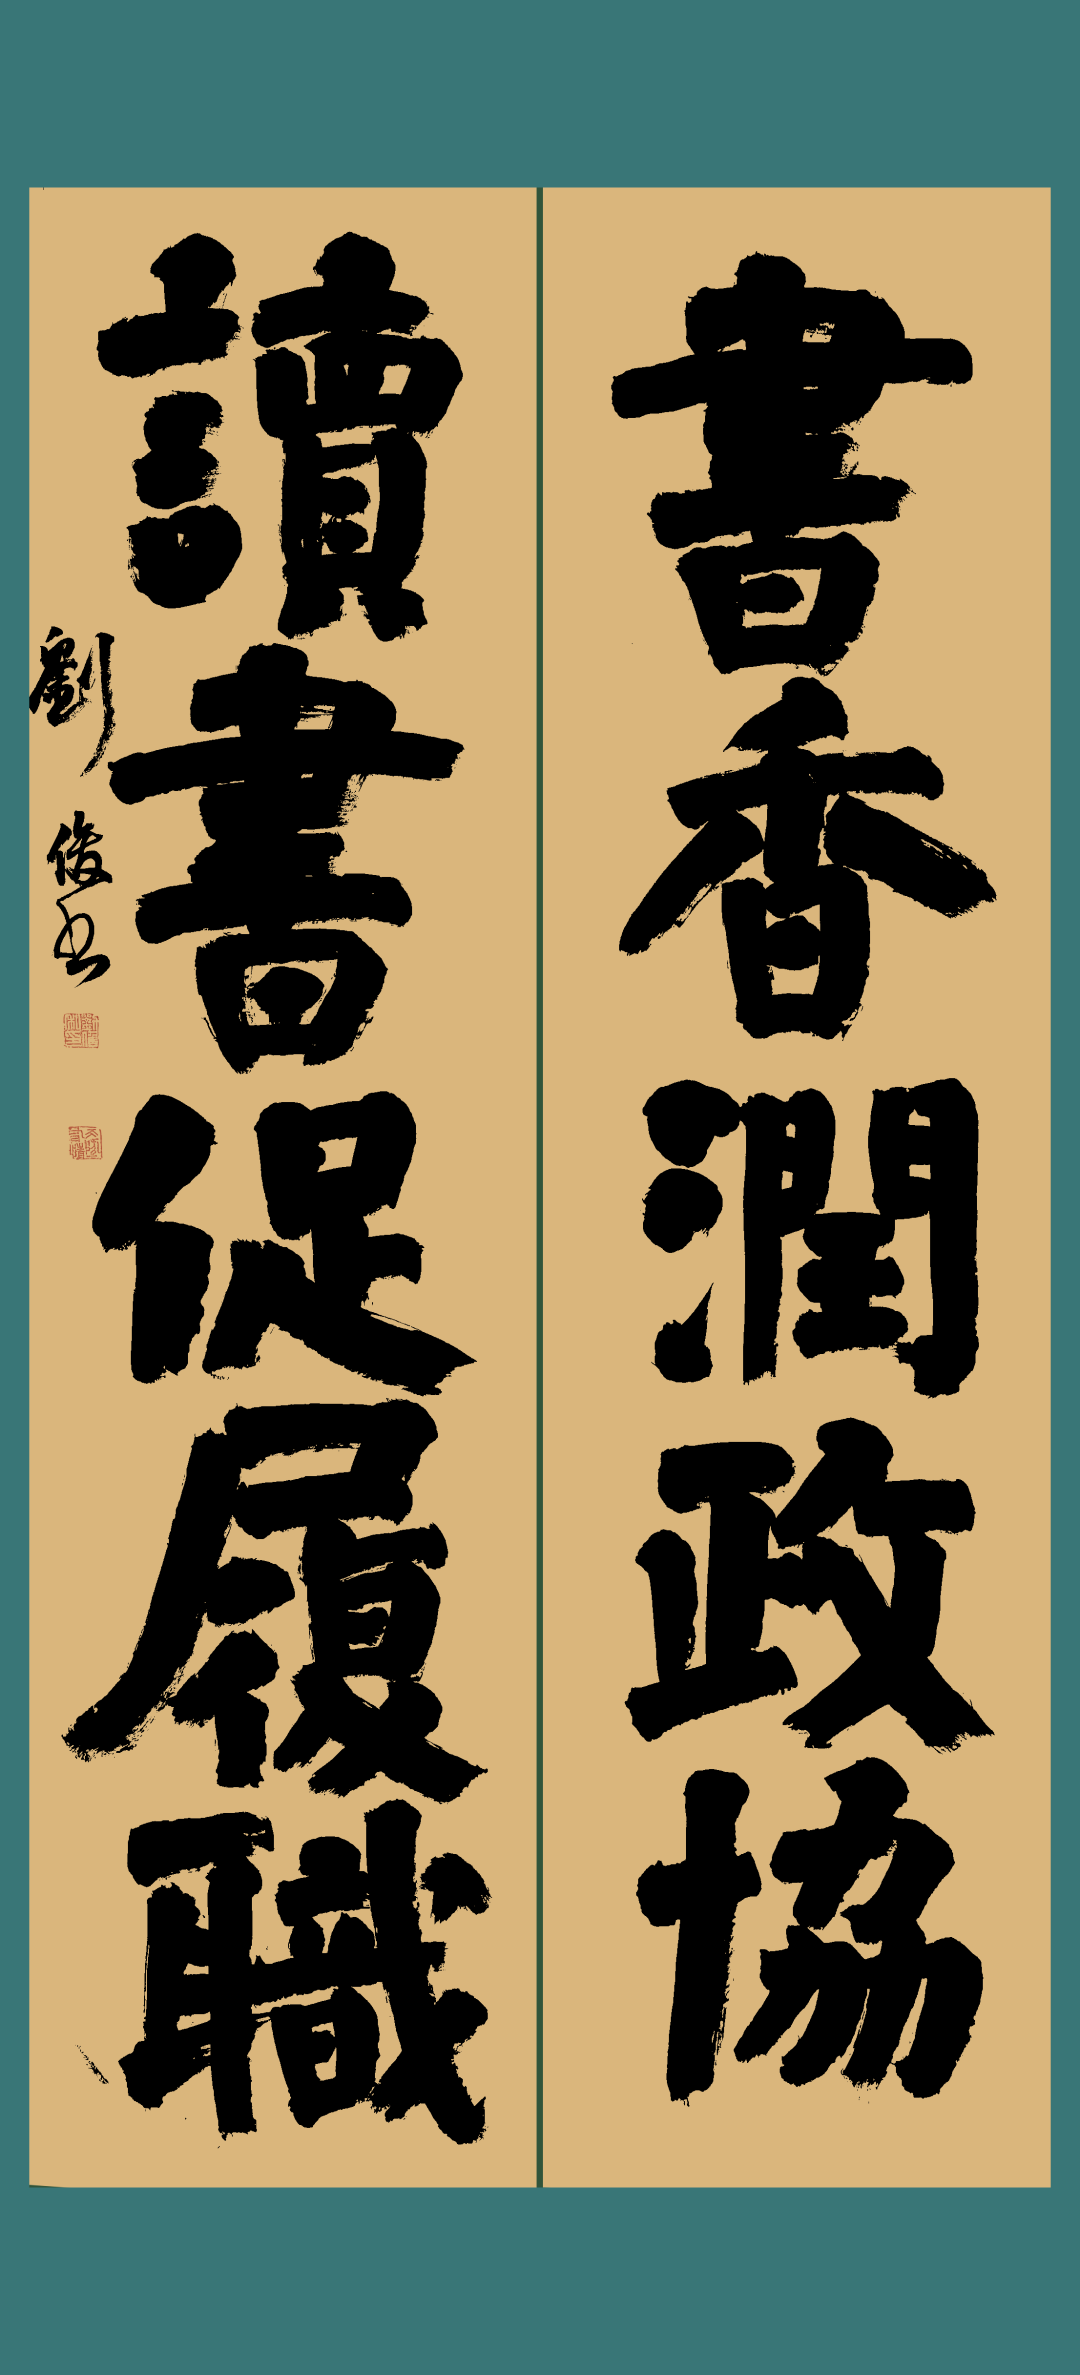 書香潤政協
讀書促履職
劉俊书